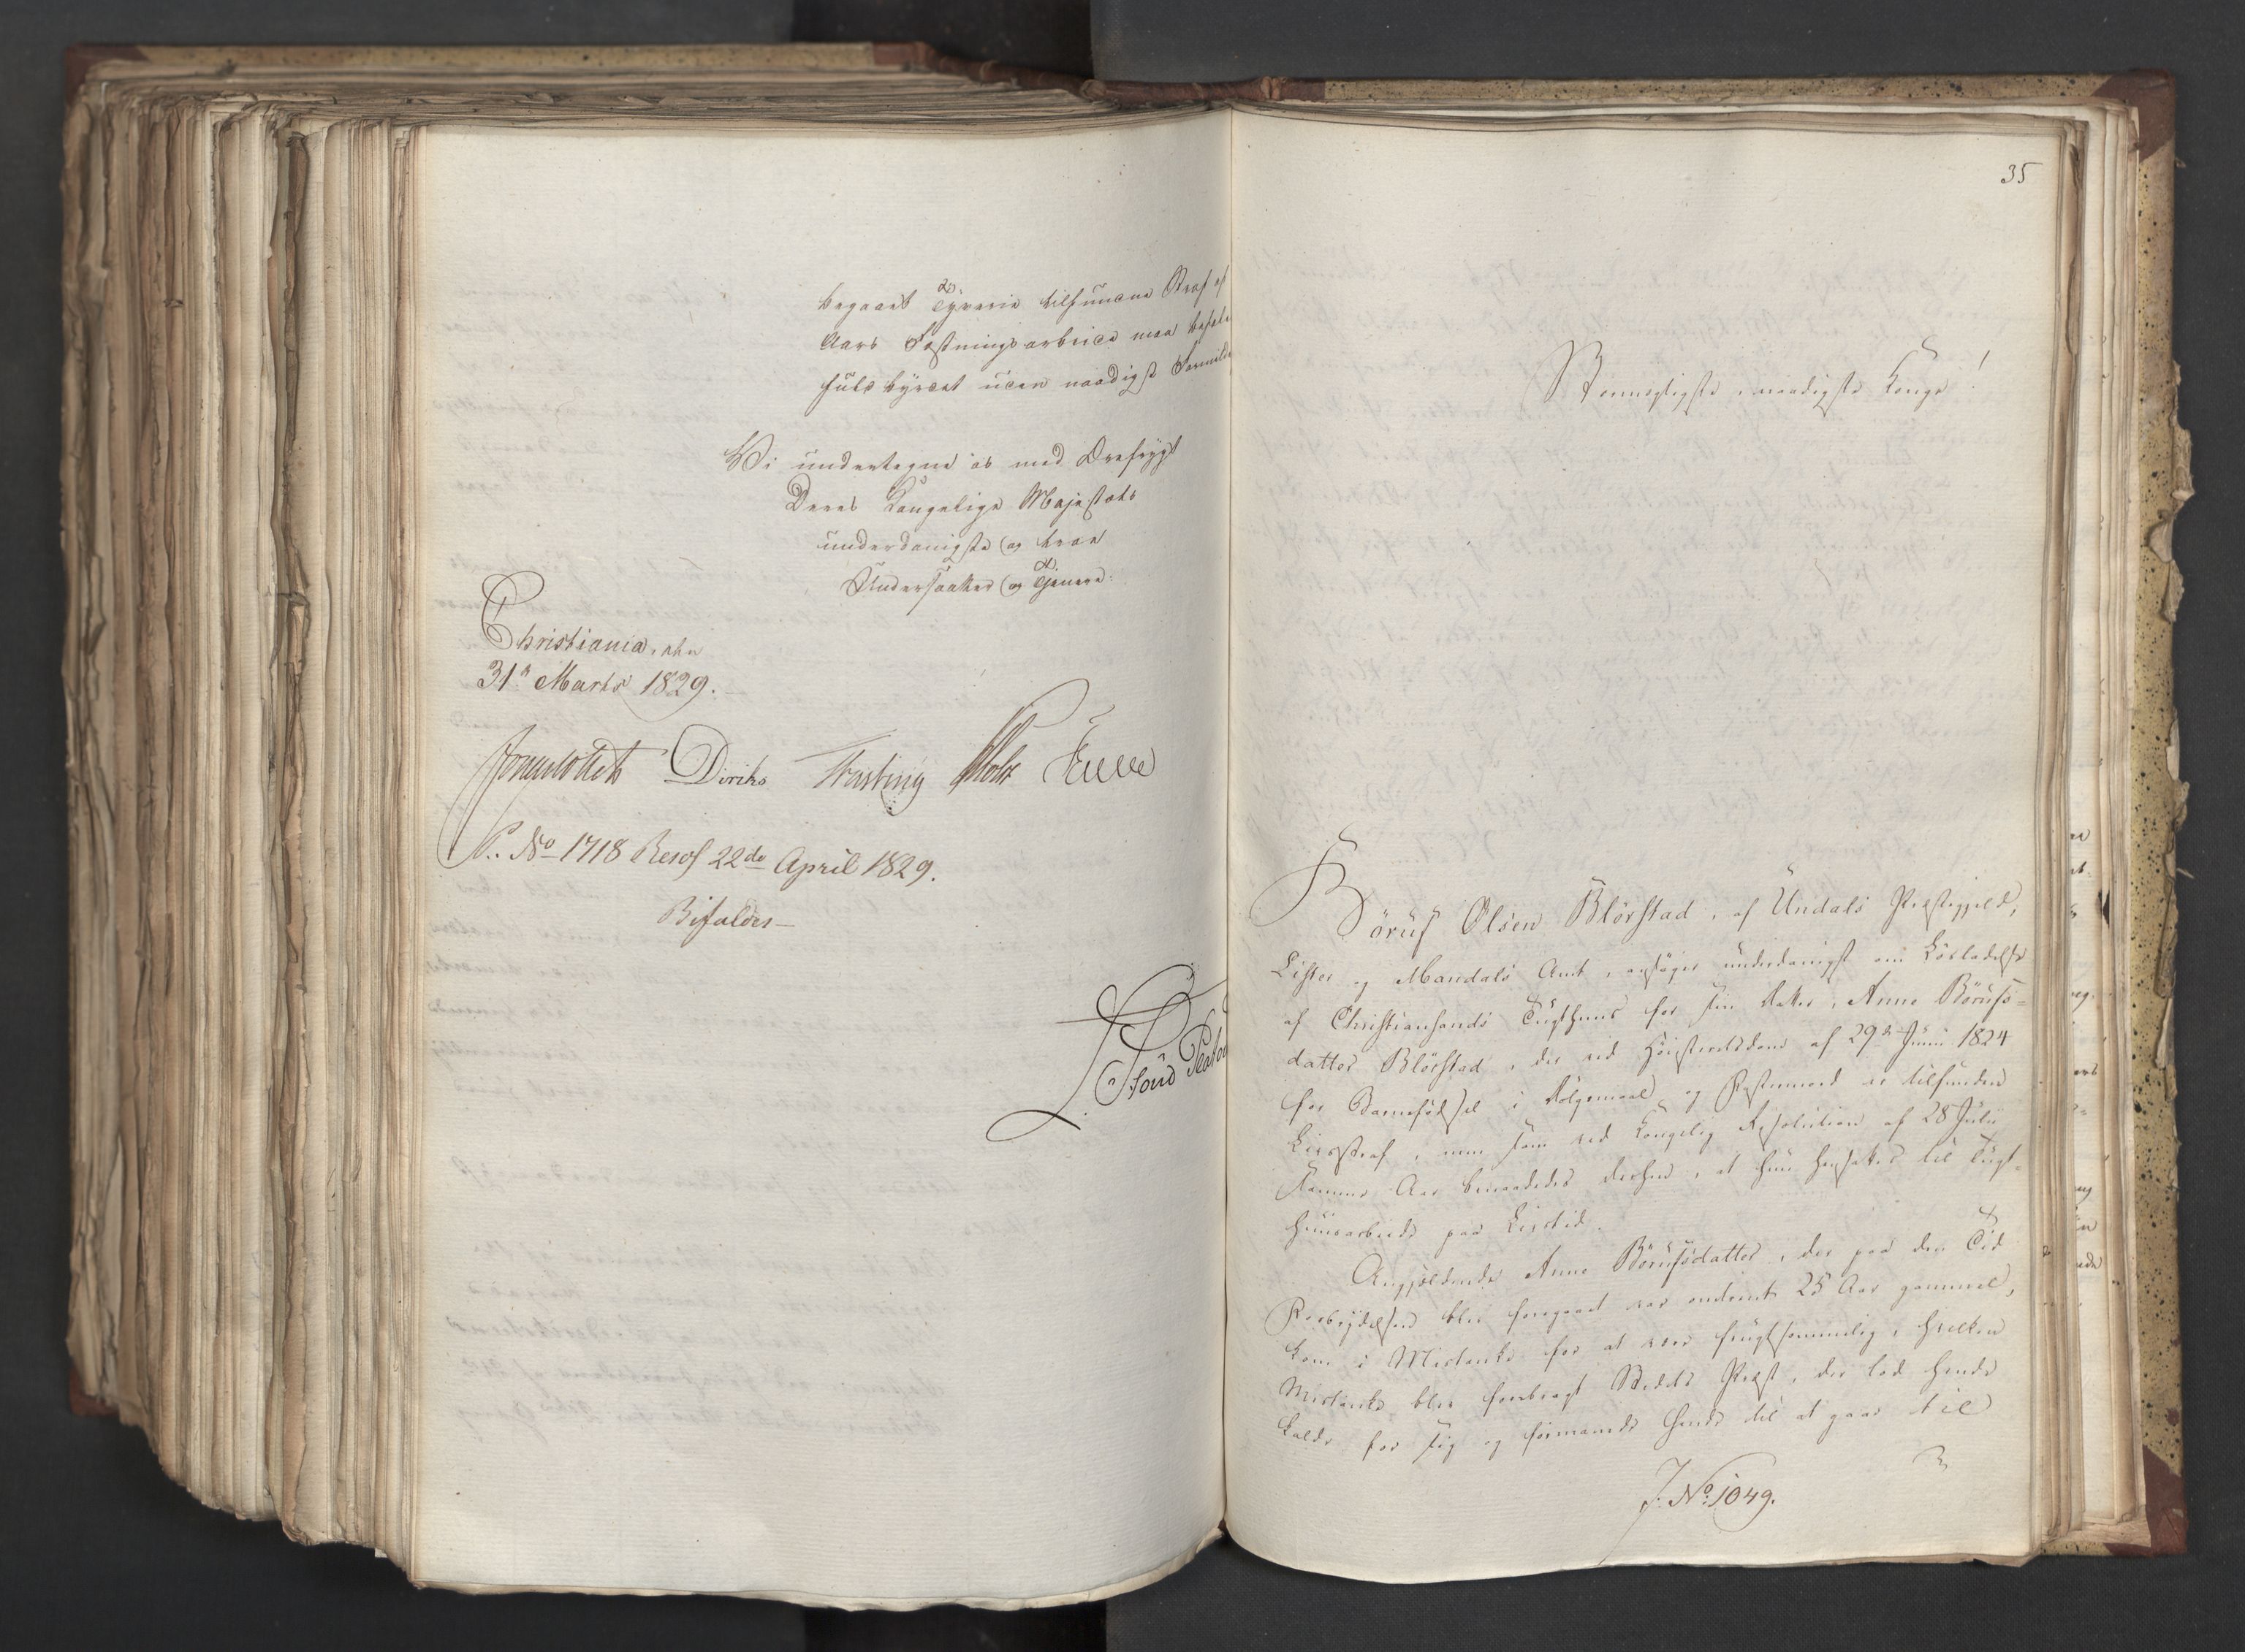 begaaet Tyverie tilfundne Straf af
Aars Fæstningsarbeide maa befales
fuldbyrdet uden naadigst Formildelse
Vi undertegne os med Ærefrygt
Deres Kongelige Majestæts
underdanigste og troe
Undersaatter og Tjenere.
Christiania, den
31te Marts 1829.
Diriks
P. No 1718 Resol 22de April 1829.
Bifaldes
35
Stormægtigste, naadigste Konge!
Böruf Olsen Blörstad, af Undals Præstegjeld,
Lister og Mandals Amt, ansøger underdanigst om Løsladelse
af Christiansands Tugthuus for sin Datter, Anne Börufs-
datter Blörstad, der ved Høiesteretsdom af 29de Juni 1824
for Barnefødsel i Dølgsmaal og Fostermord er tilfunden
Livsstraf, men som ved Kongelig Resolution af 28 Juli
samme Aar benaadedes derhen, at hun hensættes til Tugt-
huusarbeide paa Livstid.
Angjældende Anne Börufsdatter, der paa den Tid
Forbrydelsen blev foregaaet var omtrent 25 Aar gammel,
kom i Mistanke for at være frugtsommelig, hvilken
Mistanke blev forebragt Stedets Præst, der lod hende
kalde for sig og formanede hende til at gaae til
J. No 1049.